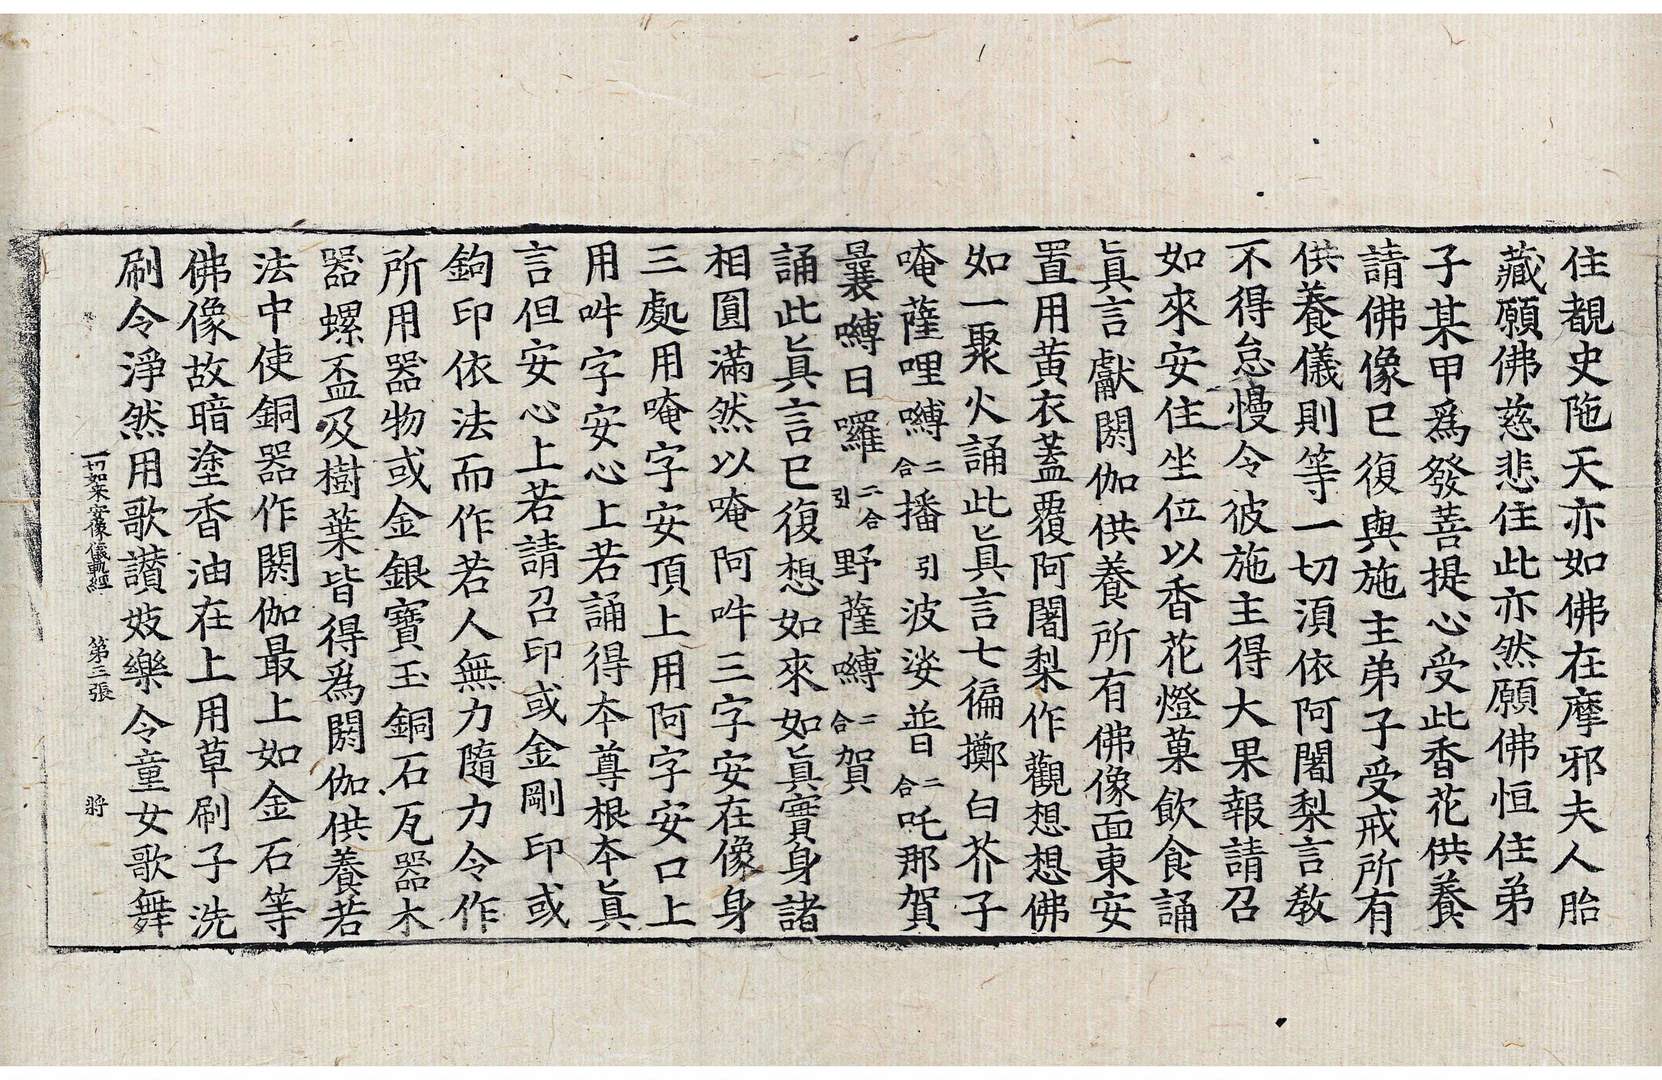 住覩史陁天亦如佛在摩耶夫人胎
藏願佛慈悲住此亦然願佛恒住弟
子某甲爲發菩提心受此香花供養
請佛像已復與施主弟子受戒所有
供養儀則等一切湏依阿闍梨言教
不得怠慢令彼施主得大果報請召
如來安住坐位以香花燈菓飮食誦
眞言獻閼伽供養所有佛像面東安
置用黄衣蓋覆阿闍梨作觀想想佛
如一聚火誦此眞言七徧擲白芥子
唵薩哩嚩二合播引波娑普二合吒那賀
曩嚩日囉二合引野薩嚩二合賀
誦此眞言已復想如來如眞實身諸
相圓滿然以唵阿吽三字安在像身
三處用唵字安頂上用阿字安口上
用吽字安心上若誦得夲尊根夲眞
言但安心上若請召印或金剛印或
鉤印依法而作若人無力隨力令作
所用器物或金銀寶玉銅石瓦器木
器螺盃及樹葉皆得爲閼伽供養若
法中使銅器作閼伽最上如金石等
佛像故暗塗香油在上用草刷子洗
刷令淨然用歌讃妓樂令童女歌舞
一切如来安像儀軌經 第三張 將